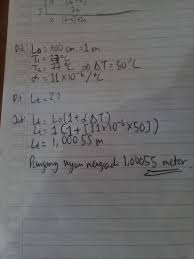 Dik: Lo = 100 cm = 1 m
T₁ = 27°C
T₂ = 77°C ⇒ ΔT = 50°C
α = 11 × 10⁻⁶/°C
Dit: Lt = ??
Jwb: Lt = Lo (1 + α ΔT)
Lt = 1 (1 + [11×10⁻⁶×50])
Lt = 1,00055 m
Panjang nya menjadi 1,00055 meter